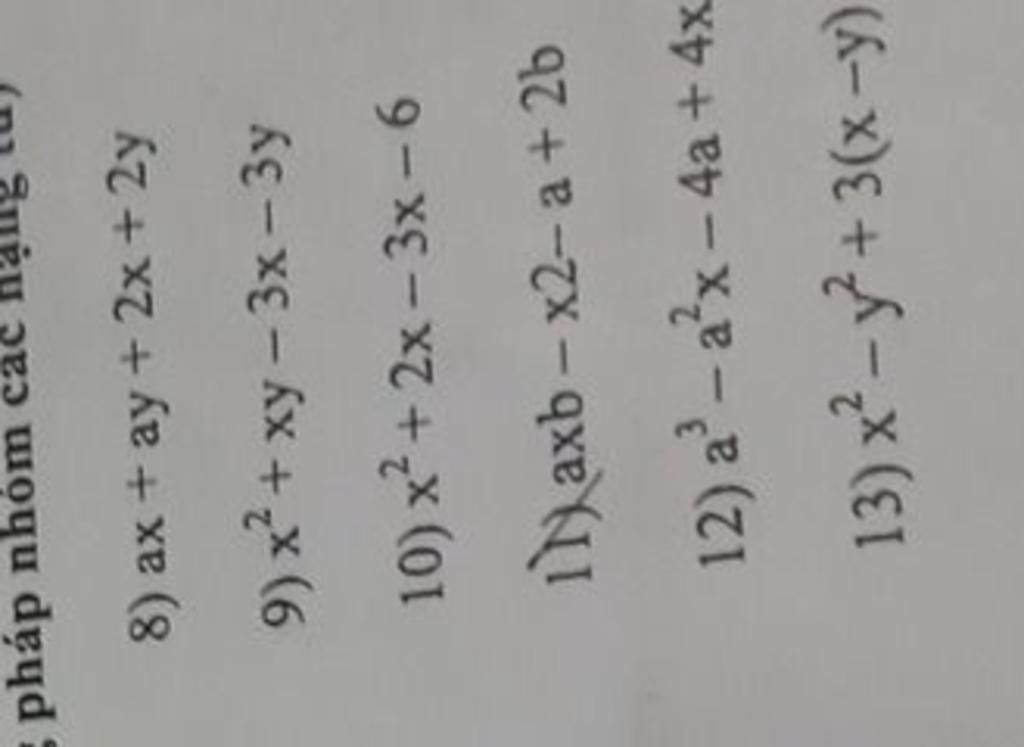 pháp nhóm các hạng tử)
8) ax + ay + 2x + 2y
9) x² + xy – 3x – 3y
10) x² + 2x – 3x – 6
11) axb – x2– a + 2b
12) a³ – a²x – 4a + 4x
13) x² – y² + 3(x –y)